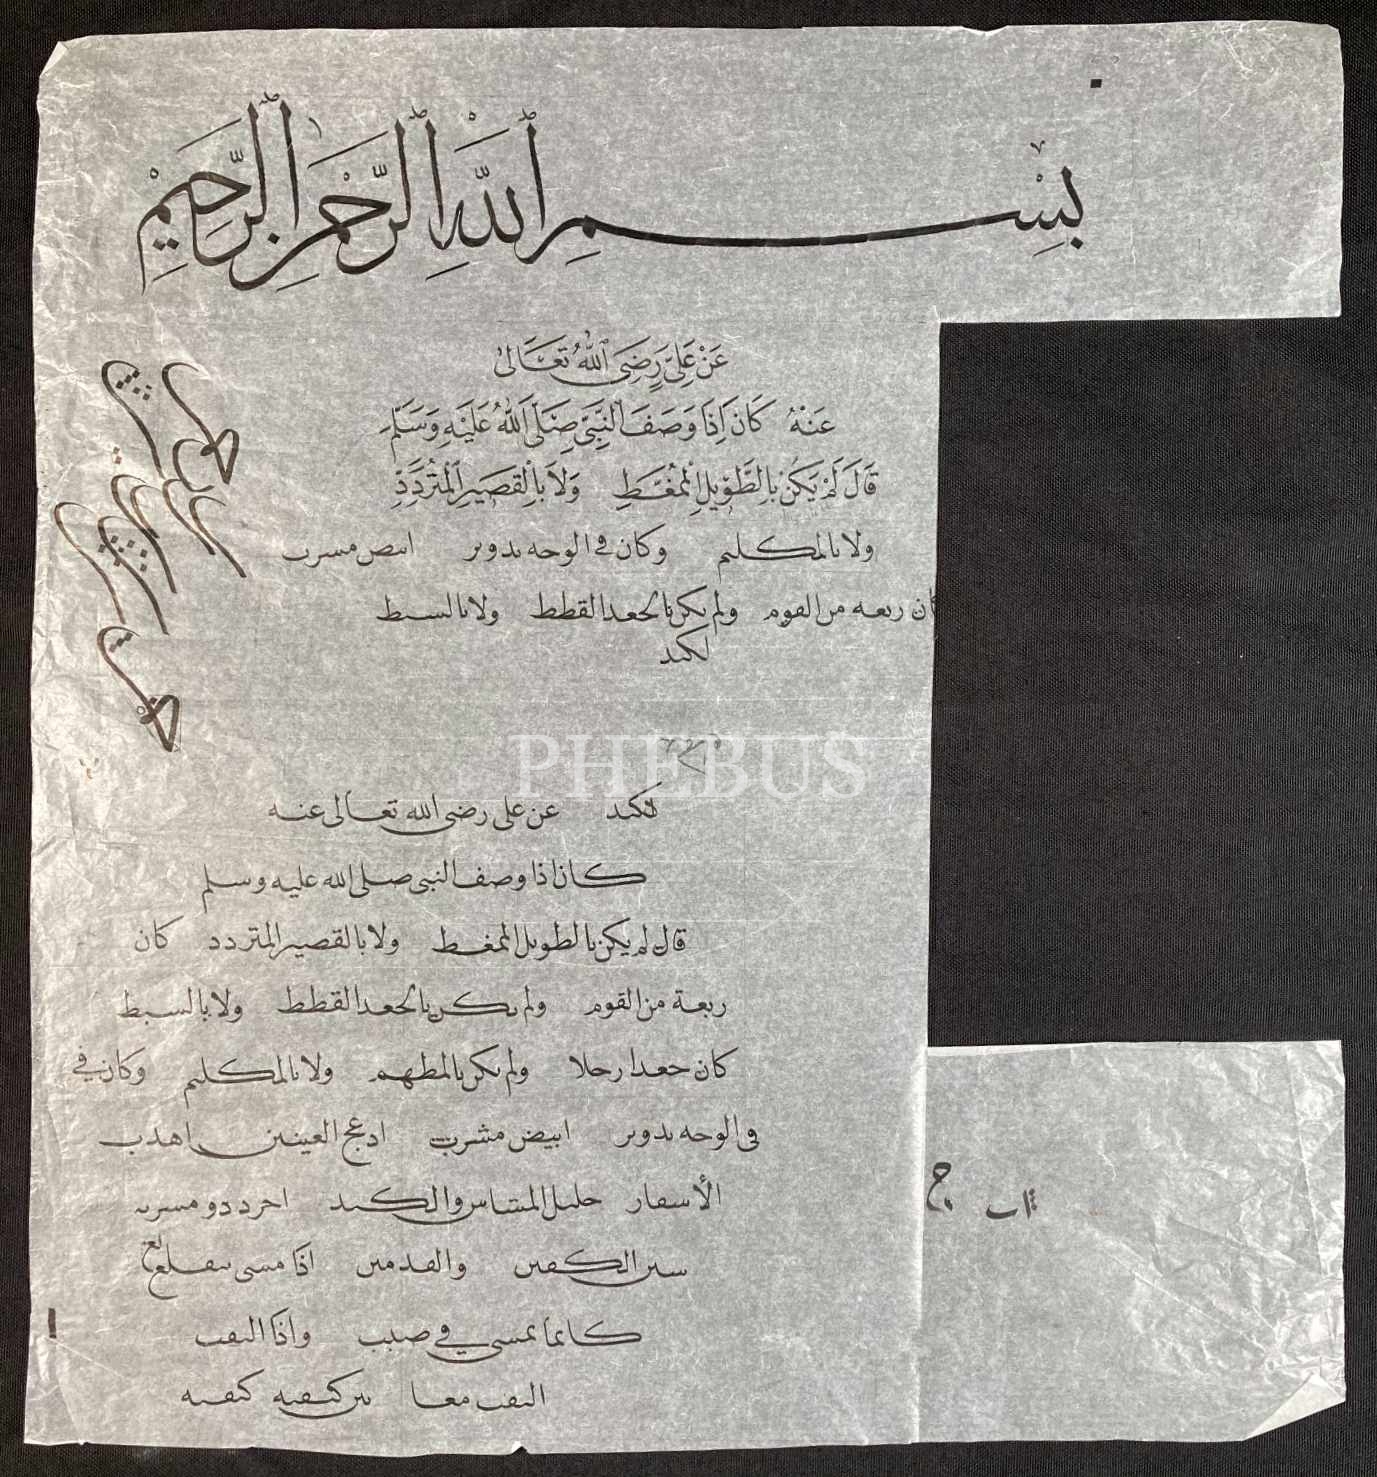 بِسْمِ ٱللَّهِ ٱلرَّحْمٰنِ ٱلرَّحِيمِ
عَنْ عَلِيٍّ رَضِىَ ٱللّٰهُ تَعَالىٰ
عَنْهُ كَانَ إِذَا وَصَفَ النَّبِىَّ صَلَّى اللّٰهُ عَلَيْهِ وَسَلَّمَ
قَالَ لَمْ يَكُنْ بِالطَّوِيلِ الْمُمَّغِطِ وَلَا بِالْقَصِيرِ الْمُتَرَدِّدِ
ولا بالمكلثم وكان فى الوجه تدوير ابيض مشرب
كان ربعة من القوم ولم يكن بالجعد القطط ولا بالسبط
لكبد
PHEBUS
لكبد عن على رضى الله تعالى عنه
كان اذا وصف النبى صلى الله عليه وسلم
قال لم يكن بالطويل الممغط ولا بالقصير المتردد كان
ربعة من القوم ولم يكن بالجعد القطط ولا بالسبط
كان جعدا رجلا ولم يكن بالمطهم ولا بالمكلثم وكان فى
فى الوجه تدوير ابيض مشرب ادعج العينين اهدب
الأشفار جليل المشاش والكتد اجرد ذو مسربه
شثن الكفين والقدمين اذا مشى تقلع
كانما يمشى فى صبب واذا التفت
التفت معا بين كتفيه كتفيه